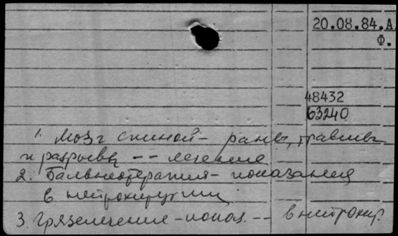 20.08.84.А
Ф.
48432
63240
1. Мозг спиной - раны, травмы
и разрывы -- лечение
2. Бальнеотерапия - показания
в нейрохирургии
3. Грязелечение - показ. -- в нейрохир.